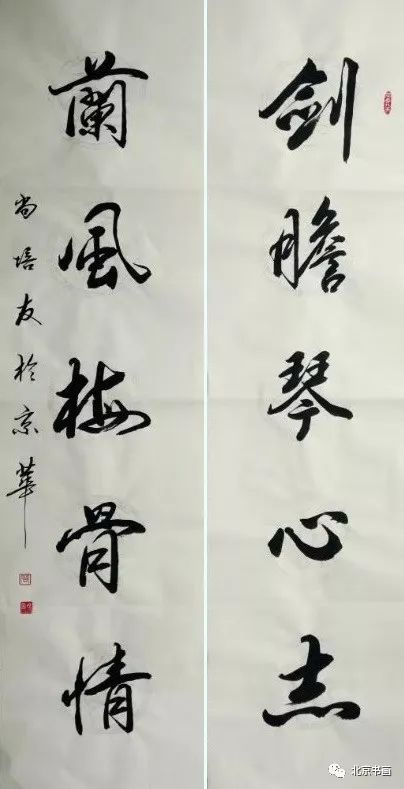 劍膽琴心志
蘭風梅骨情
尚培友於京華
北京书画